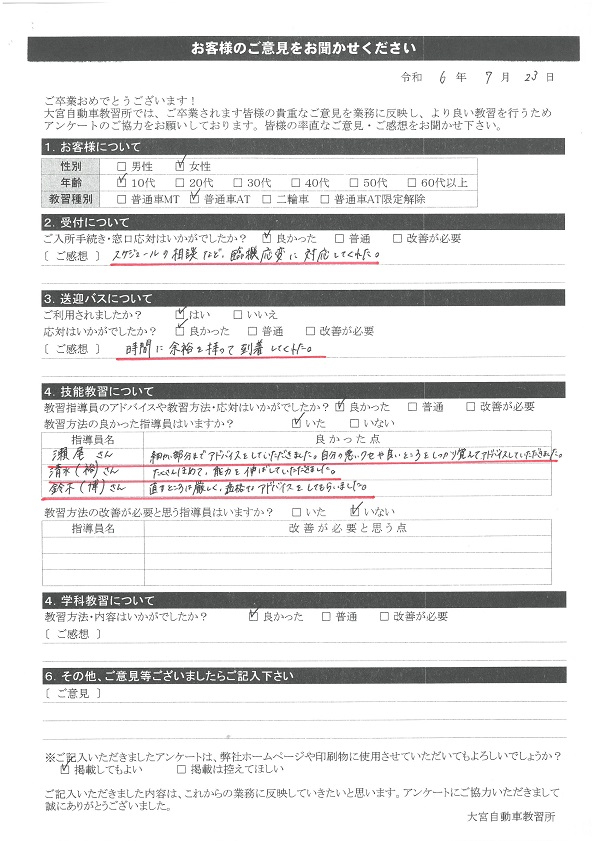 お客様のご意見をお聞かせください
令和 6 年 7 月 23 日
ご卒業おめでとうございます！
大宮自動車教習所では、ご卒業されます皆様の貴重なご意見を業務に反映し、より良い教習を行うため
アンケートのご協力をお願いしております。皆様の率直なご意見・ご感想をお聞かせ下さい。
1. お客様について
性別 □ 男性 ☑ 女性
年齢 ☑ 10代 □ 20代 □ 30代 □ 40代 □ 50代 □ 60代以上
教習種別 □ 普通車MT ☑ 普通車AT □ 二輪車 □ 普通車AT限定解除
2. 受付について
ご入所手続き・窓口応対はいかがでしたか？ ☑ 良かった □ 普通 □ 改善が必要
〔 ご感想 〕 スケジュールの相談など、臨機応変に対応してくれた。
3. 送迎バスについて
ご利用されましたか？ ☑ はい □ いいえ
応対はいかがでしたか？ ☑ 良かった □ 普通 □ 改善が必要
〔 ご感想 〕 時間に余裕を持って到着してくれた。
4. 技能教習について
教習指導員のアドバイスや教習方法・応対はいかがでしたか？ ☑ 良かった □ 普通 □ 改善が必要
教習方法の良かった指導員はいますか？ ☑ いた □ いない
指導員名 良かった点
瀬尾さん 細かい部分までアドバイスをしていただきました。自分の悪いクセや良いところをしっかり覚えてアドバイスしていただきました。
清水(裕)さん たくさんほめて、能力を伸ばしていただきました。
鈴木(博)さん 直すところは厳しく、適格なアドバイスをしてもらいました。
教習方法の改善が必要と思う指導員はいますか？ □ いた ☑ いない
指導員名 改善が必要と思う点
4. 学科教習について
教習方法・内容はいかがでしたか？ ☑ 良かった □ 普通 □ 改善が必要
〔 ご感想 〕
6. その他、ご意見等ございましたらご記入下さい
〔 ご意見 〕
※ご記入いただきましたアンケートは、弊社ホームページや印刷物に使用させていただいてもよろしいでしょうか？
☑ 掲載してもよい □ 掲載は控えてほしい
ご記入いただきました内容は、これからの業務に反映していきたいと思います。アンケートにご協力いただきまして
誠にありがとうございました。
大宮自動車教習所